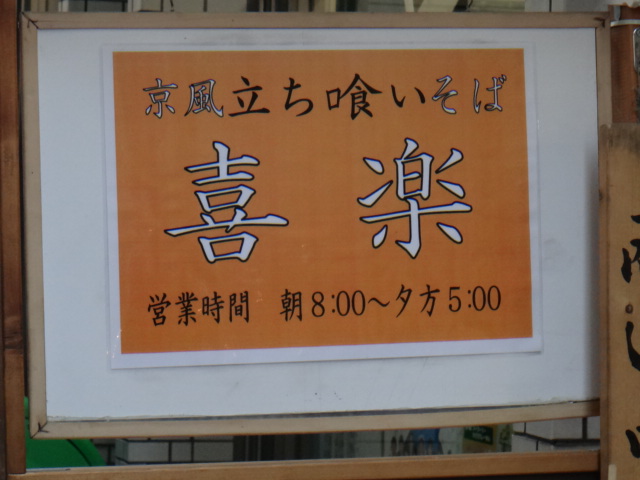 京風立ち喰いそば
喜楽
営業時間 朝8:00～夕方5:00